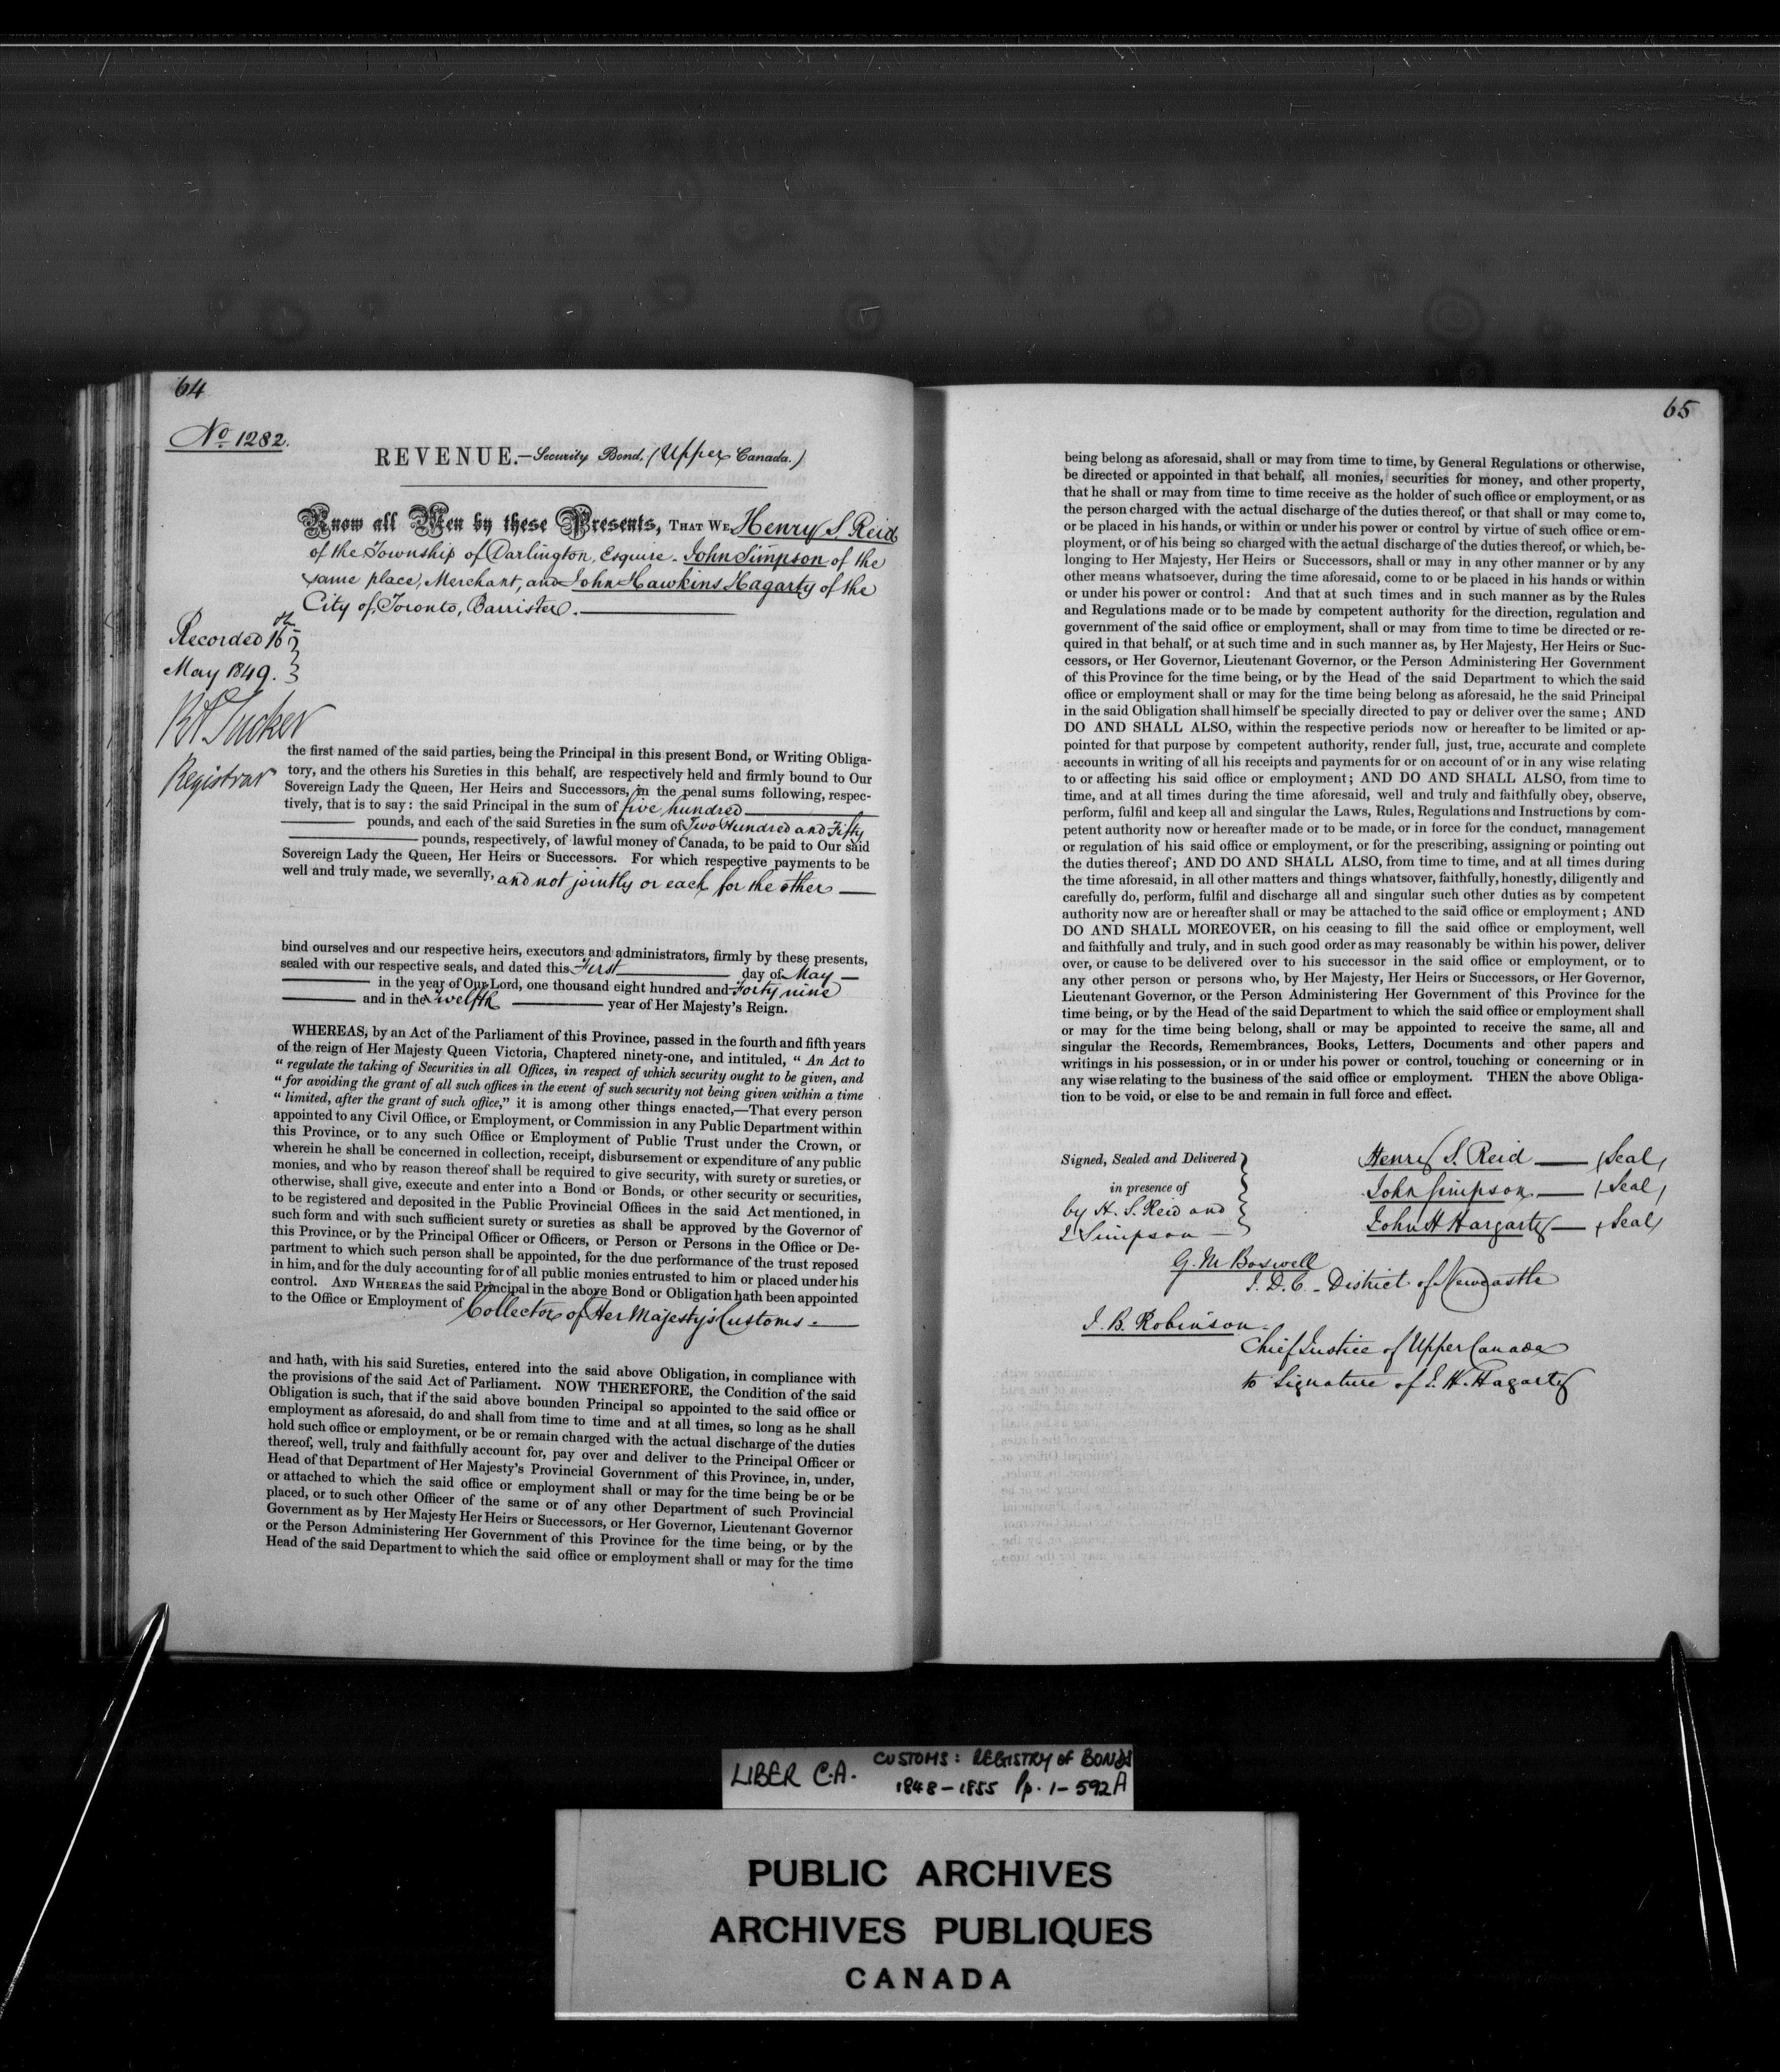 64
No 1282.
REVENUE.—Security Bond, (Upper Canada.)
Know all Men by these Presents, THAT WE Henry S. Reid
of the Township of Darlington, Esquire. John Simpson of the
same place, Merchant, and John Hawkins Hagarty of the
City of Toronto, Barrister.
Recorded 16th
May 1849.
RA Tucker
Registrar
the first named of the said parties, being the Principal in this present Bond, or Writing Obliga-
tory, and the others his Sureties in this behalf, are respectively held and firmly bound to Our
Sovereign Lady the Queen, Her Heirs and Successors, in the penal sums following, respec-
tively, that is to say: the said Principal in the sum of five hundred
pounds, and each of the said Sureties in the sum of Two Hundred and Fifty
pounds, respectively, of lawful money of Canada, to be paid to Our said
Sovereign Lady the Queen, Her Heirs or Successors. For which respective payments to be
well and truly made, we severally, and not jointly or each for the other
bind ourselves and our respective heirs, executors and administrators, firmly by these presents,
sealed with our respective seals, and dated this First day of May
in the year of Our Lord, one thousand eight hundred and Forty nine
and in the Twelfth year of Her Majesty's Reign.
WHEREAS, by an Act of the Parliament of this Province, passed in the fourth and fifth years
of the reign of Her Majesty Queen Victoria, Chaptered ninety-one, and intituled, " An Act to
" regulate the taking of Securities in all Offices, in respect of which security ought to be given, and
" for avoiding the grant of all such offices in the event of such security not being given within a time
" limited, after the grant of such office," it is among other things enacted,—That every person
appointed to any Civil Office, or Employment, or Commission in any Public Department within
this Province, or to any such Office or Employment of Public Trust under the Crown, or
wherein he shall be concerned in collection, receipt, disbursement or expenditure of any public
monies, and who by reason thereof shall be required to give security, with surety or sureties, or
otherwise, shall give, execute and enter into a Bond or Bonds, or other security or securities,
to be registered and deposited in the Public Provincial Offices in the said Act mentioned, in
such form and with such sufficient surety or sureties as shall be approved by the Governor of
this Province, or by the Principal Officer or Officers, or Person or Persons in the Office or De-
partment to which such person shall be appointed, for the due performance of the trust reposed
in him, and for the duly accounting for of all public monies entrusted to him or placed under his
control. AND WHEREAS the said Principal in the above Bond or Obligation hath been appointed
to the Office or Employment of Collector of Her Majesty's Customs.
and hath, with his said Sureties, entered into the said above Obligation, in compliance with
the provisions of the said Act of Parliament. NOW THEREFORE, the Condition of the said
Obligation is such, that if the said above bounden Principal so appointed to the said office or
employment as aforesaid, do and shall from time to time and at all times, so long as he shall
hold such office or employment, or be or remain charged with the actual discharge of the duties
thereof, well, truly and faithfully account for, pay over and deliver to the Principal Officer or
Head of that Department of Her Majesty's Provincial Government of this Province, in, under,
or attached to which the said office or employment shall or may for the time being be or be
placed, or to such other Officer of the same or of any other Department of such Provincial
Government as by Her Majesty Her Heirs or Successors, or Her Governor, Lieutenant Governor
or the Person Administering Her Government of this Province for the time being, or by the
Head of the said Department to which the said office or employment shall or may for the time
65
being belong as aforesaid, shall or may from time to time, by General Regulations or otherwise,
be directed or appointed in that behalf, all monies, securities for money, and other property,
that he shall or may from time to time receive as the holder of such office or employment, or as
the person charged with the actual discharge of the duties thereof, or that shall or may come to,
or be placed in his hands, or within or under his power or control by virtue of such office or em-
ployment, or of his being so charged with the actual discharge of the duties thereof, or which, be-
longing to Her Majesty, Her Heirs or Successors, shall or may in any other manner or by any
other means whatsoever, during the time aforesaid, come to or be placed in his hands or within
or under his power or control: And that at such times and in such manner as by the Rules
and Regulations made or to be made by competent authority for the direction, regulation and
government of the said office or employment, shall or may from time to time be directed or re-
quired in that behalf, or at such time and in such manner as, by Her Majesty, Her Heirs or Suc-
cessors, or Her Governor, Lieutenant Governor, or the Person Administering Her Government
of this Province for the time being, or by the Head of the said Department to which the said
office or employment shall or may for the time being belong as aforesaid, he the said Principal
in the said Obligation shall himself be specially directed to pay or deliver over the same; AND
DO AND SHALL ALSO, within the respective periods now or hereafter to be limited or ap-
pointed for that purpose by competent authority, render full, just, true, accurate and complete
accounts in writing of all his receipts and payments for or on account of or in any wise relating
to or affecting his said office or employment; AND DO AND SHALL ALSO, from time to
time, and at all times during the time aforesaid, well and truly and faithfully obey, observe,
perform, fulfil and keep all and singular the Laws, Rules, Regulations and Instructions by com-
petent authority now or hereafter made or to be made, or in force for the conduct, management
or regulation of his said office or employment, or for the prescribing, assigning or pointing out
the duties thereof; AND DO AND SHALL ALSO, from time to time, and at all times during
the time aforesaid, in all other matters and things whatsover, faithfully, honestly, diligently and
carefully do, perform, fulfil and discharge all and singular such other duties as by competent
authority now are or hereafter shall or may be attached to the said office or employment; AND
DO AND SHALL MOREOVER, on his ceasing to fill the said office or employment, well
and faithfully and truly, and in such good order as may reasonably be within his power, deliver
over, or cause to be delivered over to his successor in the said office or employment, or to
any other person or persons who, by Her Majesty, Her Heirs or Successors, or Her Governor,
Lieutenant Governor, or the Person Administering Her Government of this Province for the
time being, or by the Head of the said Department to which the said office or employment shall
or may for the time being belong, shall or may be appointed to receive the same, all and
singular the Records, Remembrances, Books, Letters, Documents and other papers and
writings in his possession, or in or under his power or control, touching or concerning or in
any wise relating to the business of the said office or employment. THEN the above Obliga-
tion to be void, or else to be and remain in full force and effect.
Signed, Sealed and Delivered
in presence of
by H. S. Reid and
J Simpson
Henry S. Reid (Seal)
John Simpson (Seal)
John H Hargarty (Seal)
G. M Boswell
J. D. C. - District of Newcastle
J. B. Robinson.
Chief Justice of Upper Canada
to Signature of J. H. Hagarty
LIBER C.A. CUSTOMS: REGISTRY OF BONDS
1848-1855 Pp. 1-592A
PUBLIC ARCHIVES
ARCHIVES PUBLIQUES
CANADA